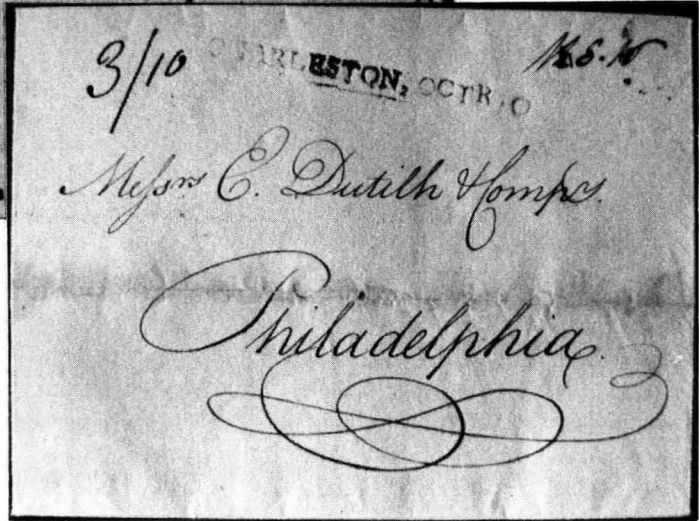 3/10 CHARLESTON, OCTR. O
Messrs E. Dutilh & Compy.
Philadelphia